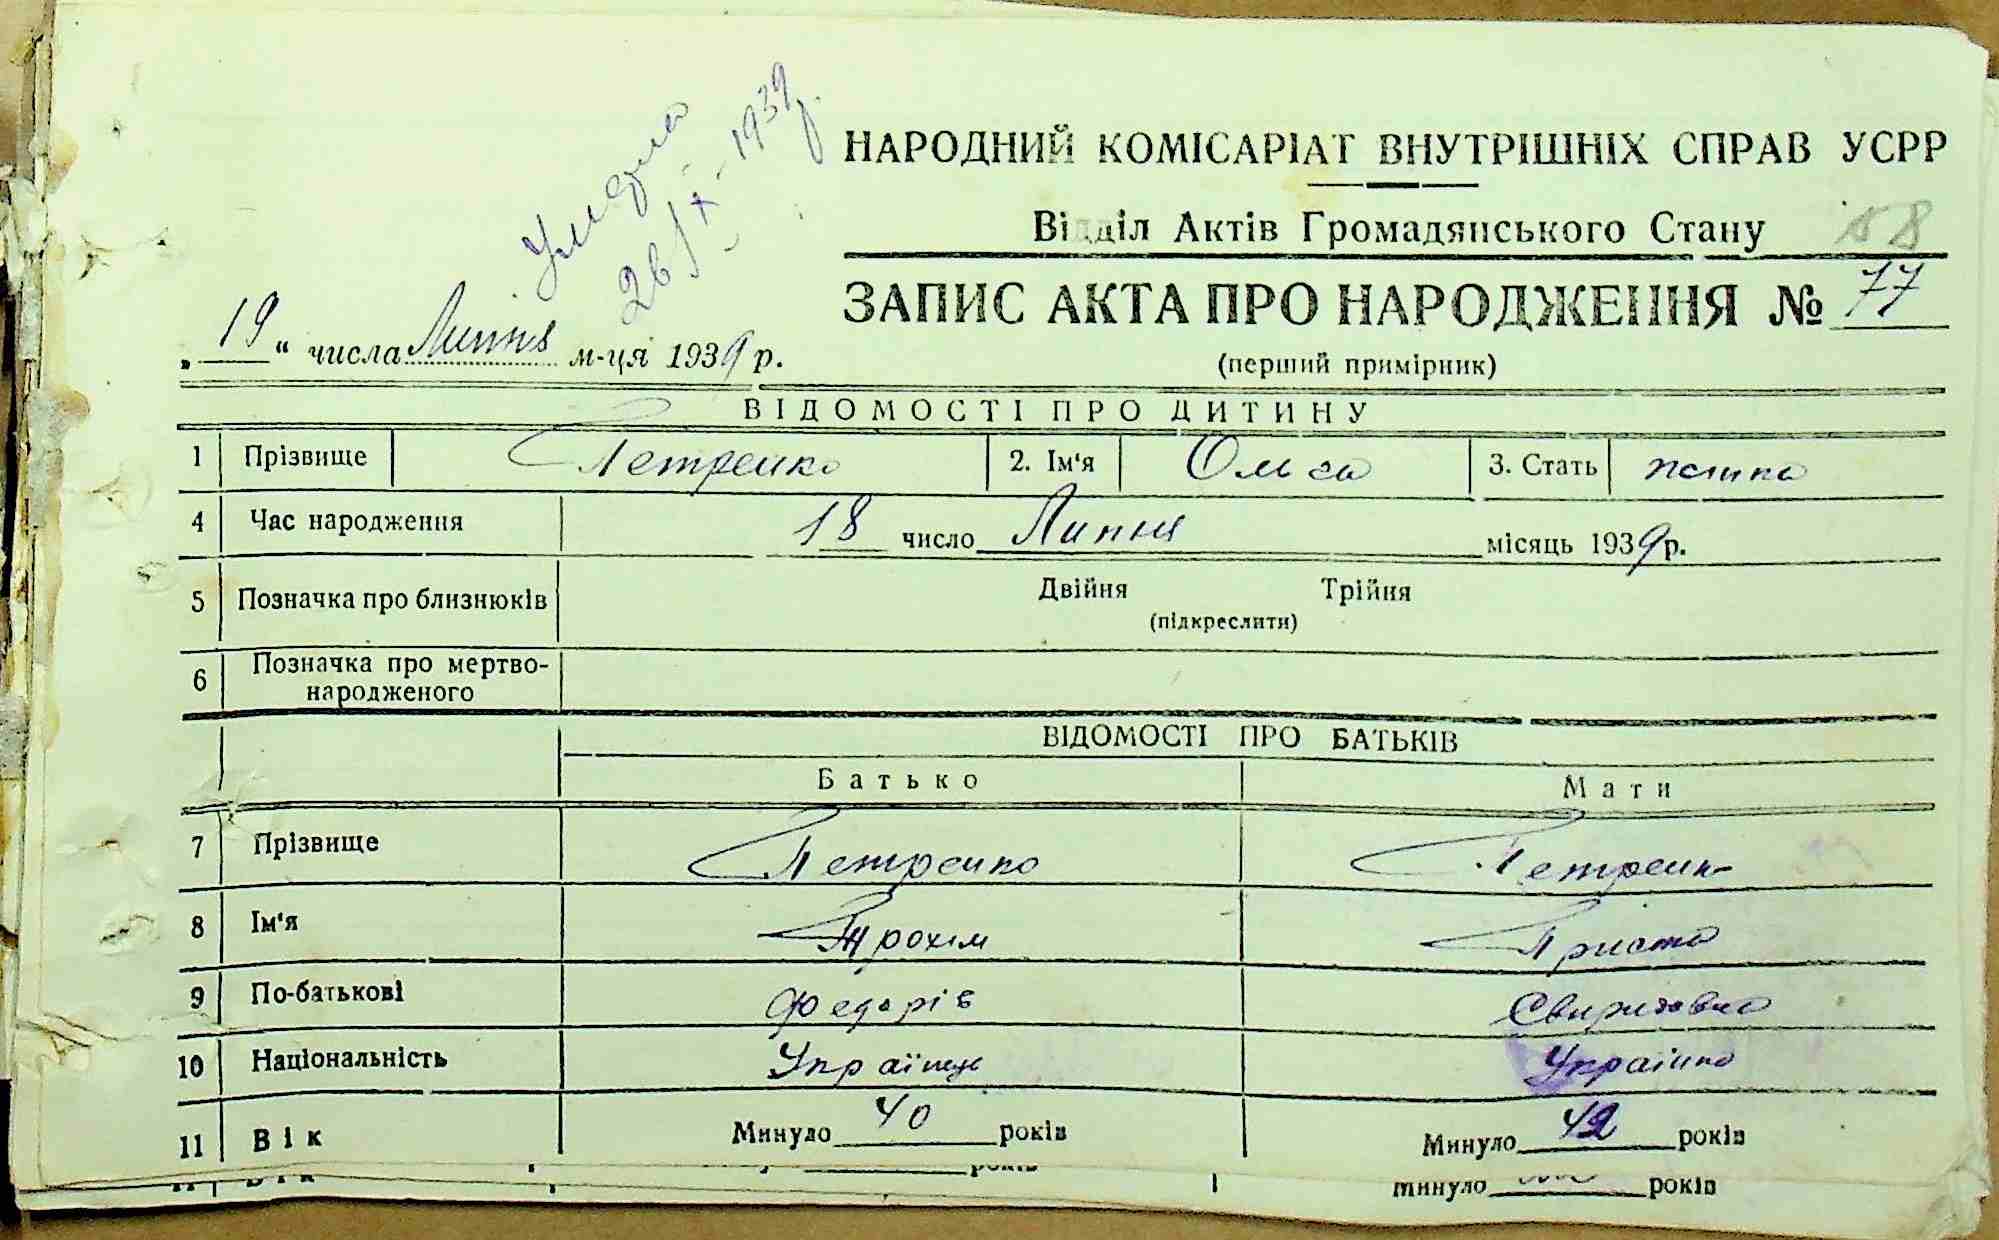 Умерла
26/X-1939р.
НАРОДНИЙ КОМІСАРІАТ ВНУТРІШНІХ СПРАВ УСРР
Відділ Актів Громадянського Стану 58
ЗАПИС АКТА ПРО НАРОДЖЕННЯ № 77
(перший примірник)
„19“ числа Липня м-ця 1939 р.
ВІДОМОСТІ ПРО ДИТИНУ
1 Прізвище Петренко 2. Ім'я Ольга 3. Стать жінка
4 Час народження 18 число Липня місяць 1939р.
5 Позначка про близнюків Двійня Трійня
(підкреслити)
6 Позначка про мертво-
народженого
ВІДОМОСТІ ПРО БАТЬКІВ
Батько Мати
7 Прізвище Петренко Петренко
8 Ім'я Трохим Пристя
9 По-батькові Федорів Свиридовна
10 Національність Українць Українка
11 Вік Минуло 40 років Минуло 42 років
11 Вік років минуло років